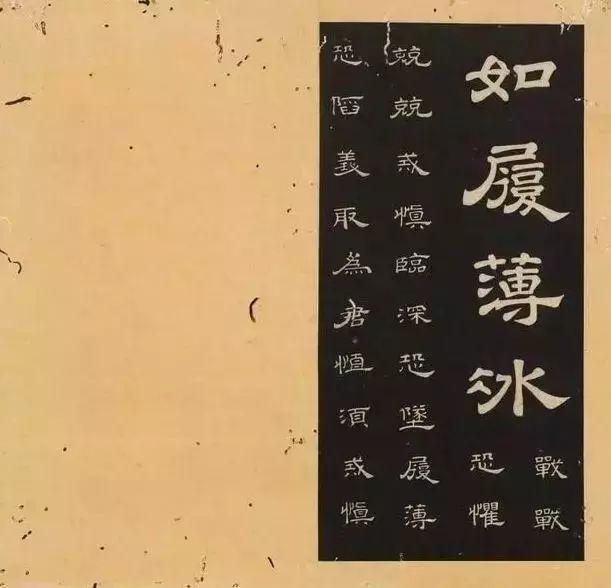 如履薄冰
戰戰
恐懼
兢兢戒愼臨深恐墜履薄
恐陷義取為君恒須戒愼